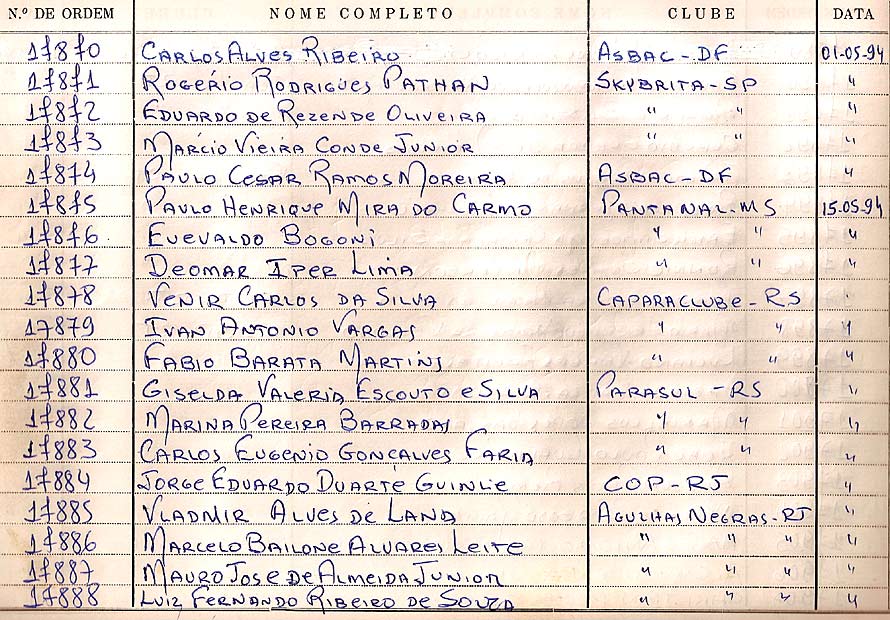 N.º DE ORDEM NOME COMPLETO CLUBE DATA
17870 CARLOS ALVES RIBEIRO ASBAC-DF 01-05-94
17871 ROGÉRIO RODRIGUES PATHAN SKYBRITA-SP "
17872 EDUARDO DE REZENDE OLIVEIRA " " "
17873 MÁRCIO VIEIRA CONDE JUNIOR " " "
17874 PAULO CESAR RAMOS MOREIRA ASBAC-DF "
17875 PAULO HENRIQUE MIRA DO CARMO PANTANAL-MS 15-05-94
17876 EUEVALDO BOGONI " " "
17877 DEOMAR IPER LIMA " " "
17878 VENIR CARLOS DA SILVA CAPARACLUBE-RS "
17879 IVAN ANTONIO VARGAS " " "
17880 FABIO BARATA MARTINS " " "
17881 GISELDA VALERIA ESCOUTO e SILVA PARASUL-RS "
17882 MARINA PEREIRA BARRADAS " " "
17883 CARLOS EUGENIO GONCALVES FARIA " " "
17884 JORGE EDUARDO DUARTE GUINLE COP-RJ "
17885 VLADMIR ALVES DE LANA AGULHAS NEGRAS-RJ "
17886 MARCELO BAILONE ALVARES LEITE " " " "
17887 MAURO JOSE DE ALMEIDA JUNIOR " " " "
17888 LUIZ FERNANDO RIBEIRO DE SOUZA " " " "